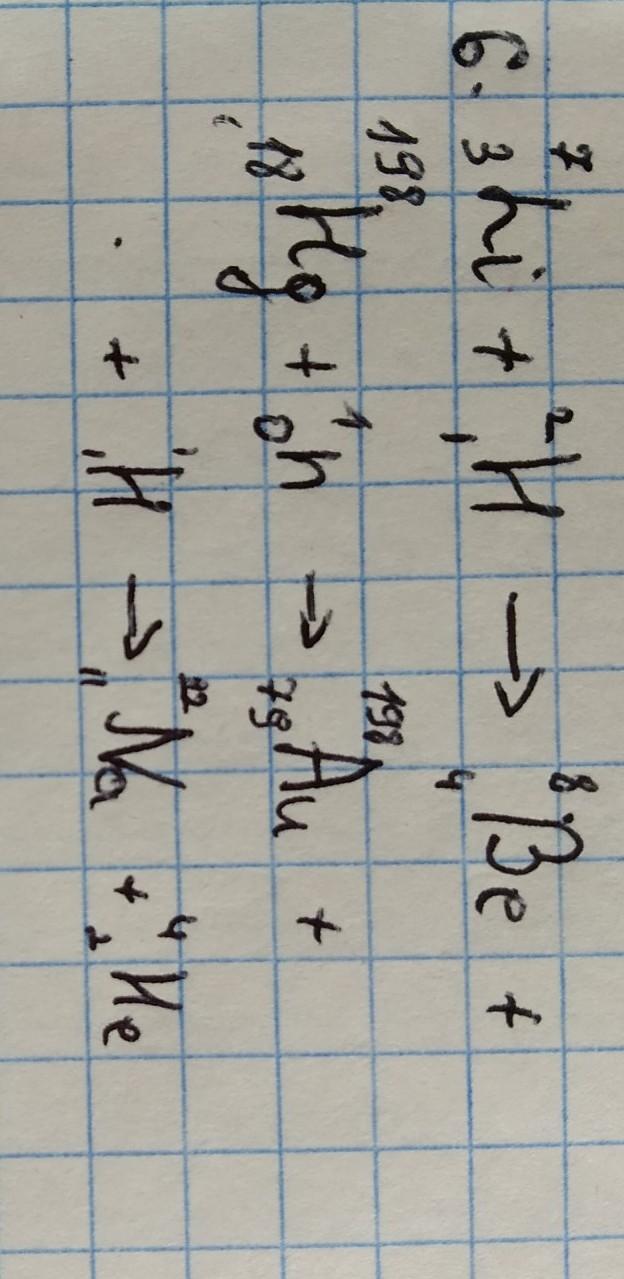 6. ⁷₃Li + ²₁H → ⁸₄Be +
¹⁹⁸₁₈Hg + ¹₀n → ¹⁹⁸₇₉Au +
. + ¹₁H → ²²₁₁Na + ⁴₂He